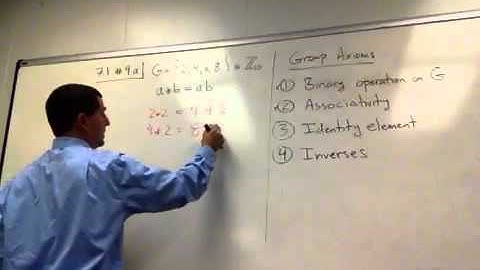 7.1 #9a) G = {2,4,6,8} ⊆ ℤ₁₀
a*b = ab
2*2 = 4
4*2 = 8
Group Axioms
1) Binary operation on G
2) Associativity
3) Identity element
4) Inverses